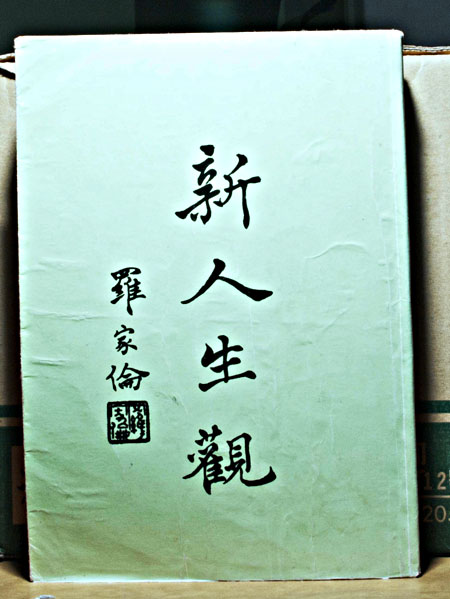 新人生觀
羅家倫
12
20